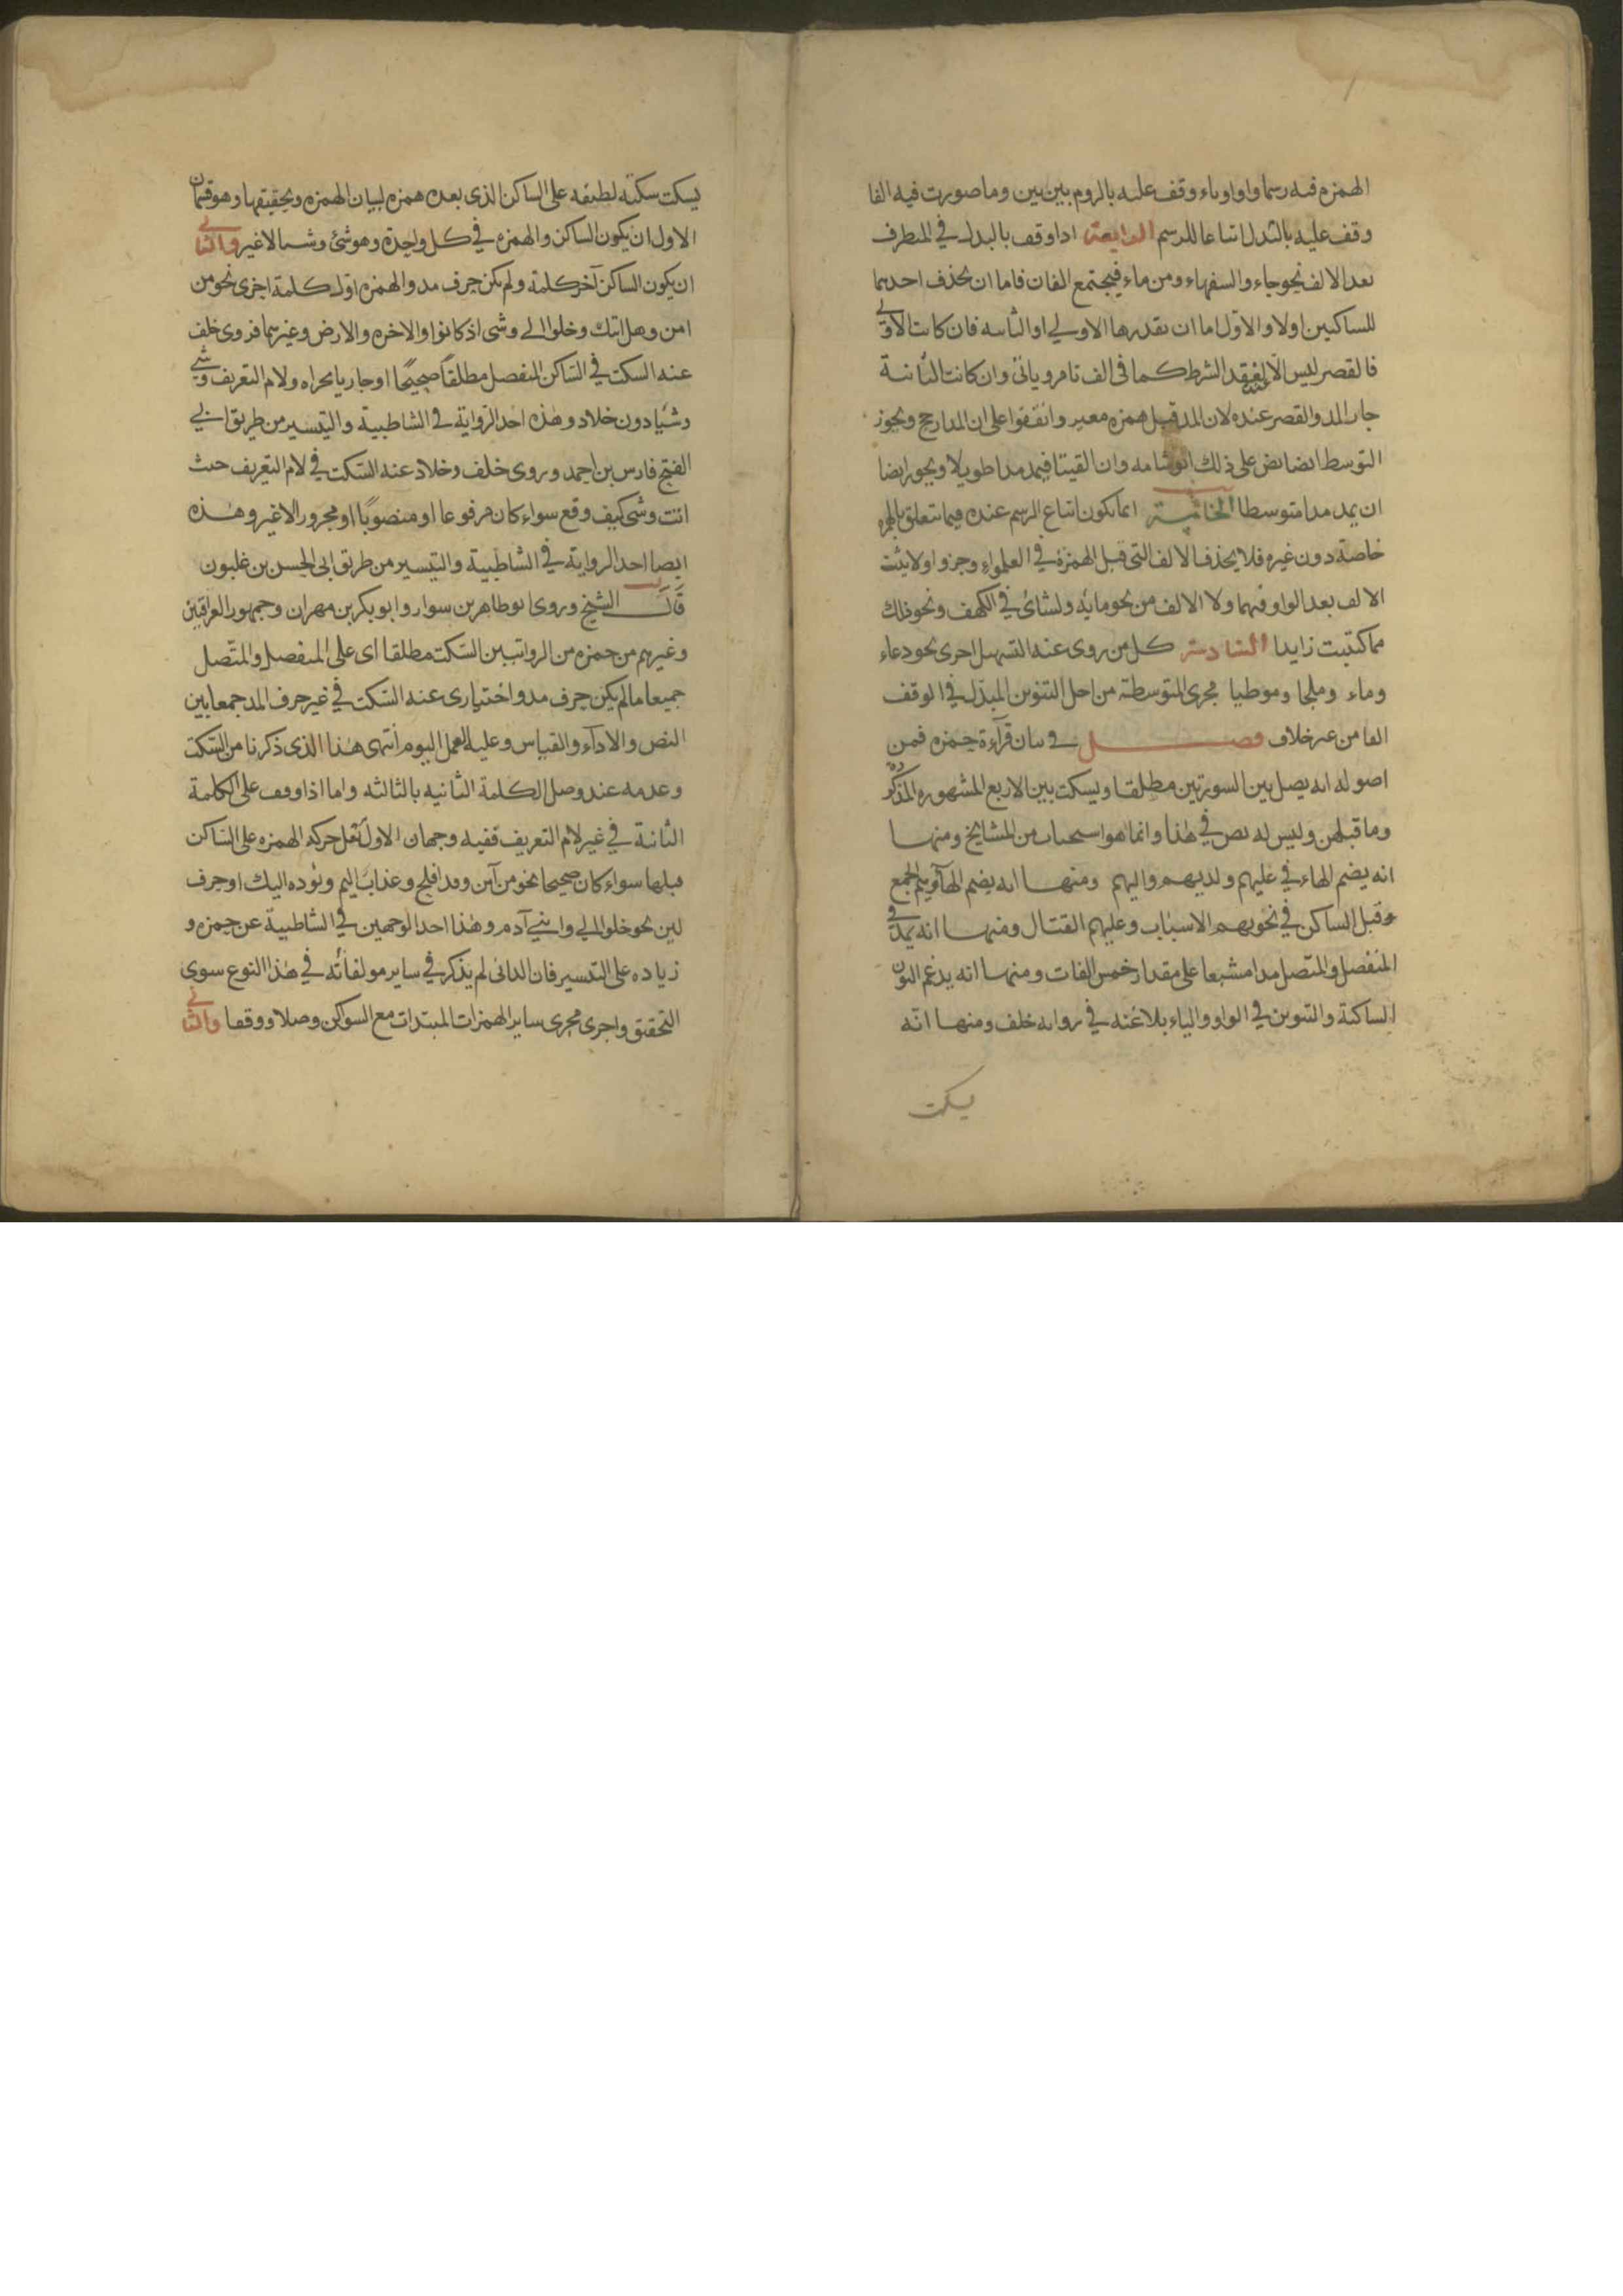 الهمزه فيه رسما واوا وياء وقف عليه بالروم بين بين وما صورت فيه الفا
وقف عليه بالبدل اتباعا للرسم الرابعة اذا وقف بالبدل في المتطرف
بعد الالف نحو جاء والسفهاء ومن ماء فيجتمع الفان فاما ان يحذف احدهما
للساكنين اولا والاول اما ان يقدرها الاولي او الثانيه فان كانت الاولي
فالقصر ليس الا لفقد الشرط كما في الف تامر وياتي وان كانت الثانية
جاز المد والقصر عنده لان المد قبل همزه مغير واتفقوا على ان المد ارجح ويجوز
التوسط ايضا نص على ذلك ابو شامه وان القيتا فيمد مدا طويلا ويجوز ايضا
ان يمد مدا متوسطا الخامسة انما يكون اتباع الرسم عنده فيما يتعلق بالهمزه
خاصة دون غيره فلا يحذف الالف التى قبل الهمزة في العلمواء وجزوا ولا يثبت
الالف بعد الواو فيهما ولا الالف من نحو مايه ولشائ في الكهف ونحو ذلك
مما كتبت زايدا السادسة كل من روى عنه التسهيل اجرى نحو دعاء
وماء وملجا وموطيا مجرى المتوسطة من اجل التنوين المبدل في الوقف
الفا من غير خلاف فصل في بيان قرآءة حمزه فمن
اصوله انه يصل بين السورتين مطلقا ويسكت بين الاربع المشهوره المذكوره
وما قبلهن وليس له نص في هذا وانما هو استحباب من المشايخ ومنها
انه يضم الهاء في عليهم ولديهم واليهم ومنها انه يضم الهآء وميم الجمع
قبل الساكن في نحو بهم الاسباب وعليهم القتال ومنها انه يمد في
المنفصل والمتصل مدا مشبعا على مقدار خمس الفات ومنها انه يدغم النون
الساكنة والتنوين في الواو والياء بلا غنه في روايه خلف ومنها انه
يسكت
يسكت سكتة لطيفه على الساكن الذى بعده همزه لبيان الهمزه وتحقيقها وهو قسمان
الاول ان يكون الساكن والهمزه في كل واحدة وهو شئ وشيا لا غير والثاني
ان يكون الساكن آخر كلمة ولم يكن حرف مد والهمزه اول كلمة اخرى نحو من
امن وهل اتك وخلوا الى وشى اذ كانوا والاخره والارض وغيرهما فروى خلف
عنه السكت في الساكن المنفصل مطلقا صحيحا او جاريا مجراه ولام التعريف وشى
وشيا دون خلاد وهذه احد الرواية في الشاطبية والتيسير من طريق ابي
الفتح فارس بن احمد وروى خلف وخلاد عنه السكت في لام التعريف حيث
اتت وشى كيف وقع سواء كان مرفوعا او منصوبا او مجرورا لا غير وهذه
ايضا احد الرواية في الشاطبية والتيسير من طريق ابى الحسن بن غلبون
قال الشيخ وروى ابو طاهر بن سوار وابو بكر بن مهران وجمهور العراقيين
وغيرهم من حمزه من الروايتين السكت مطلقا اى على المنفصل والمتصل
جميعا ما لم يكن حرف مد واختيارى عنه السكت في غير حرف المد جمعا بين
النص والادآء والقياس وعليه العمل اليوم انتهى هذا الذى ذكرنا من السكت
وعدمه عند وصل الكلمة الثانيه بالثالثه واما اذا وقف على الكلمة
الثانية في غير لام التعريف ففيه وجهان الاول نقل حركه الهمزه على الساكن
قبلها سواء كان صحيحا نحو من آمن وقد افلح وعذاب اليم ونؤده اليك او حرف
لين نحو خلوا الى وابنى آدم وهذا احد الوجهين في الشاطبية عن حمزه و
زياده على التيسير فان الدانى لم يذكر في ساير مولفاته في هذا النوع سوى
التحقيق واجرى مجرى ساير الهمزات المبتدات مع السواكن وصلا ووقفا والثاني